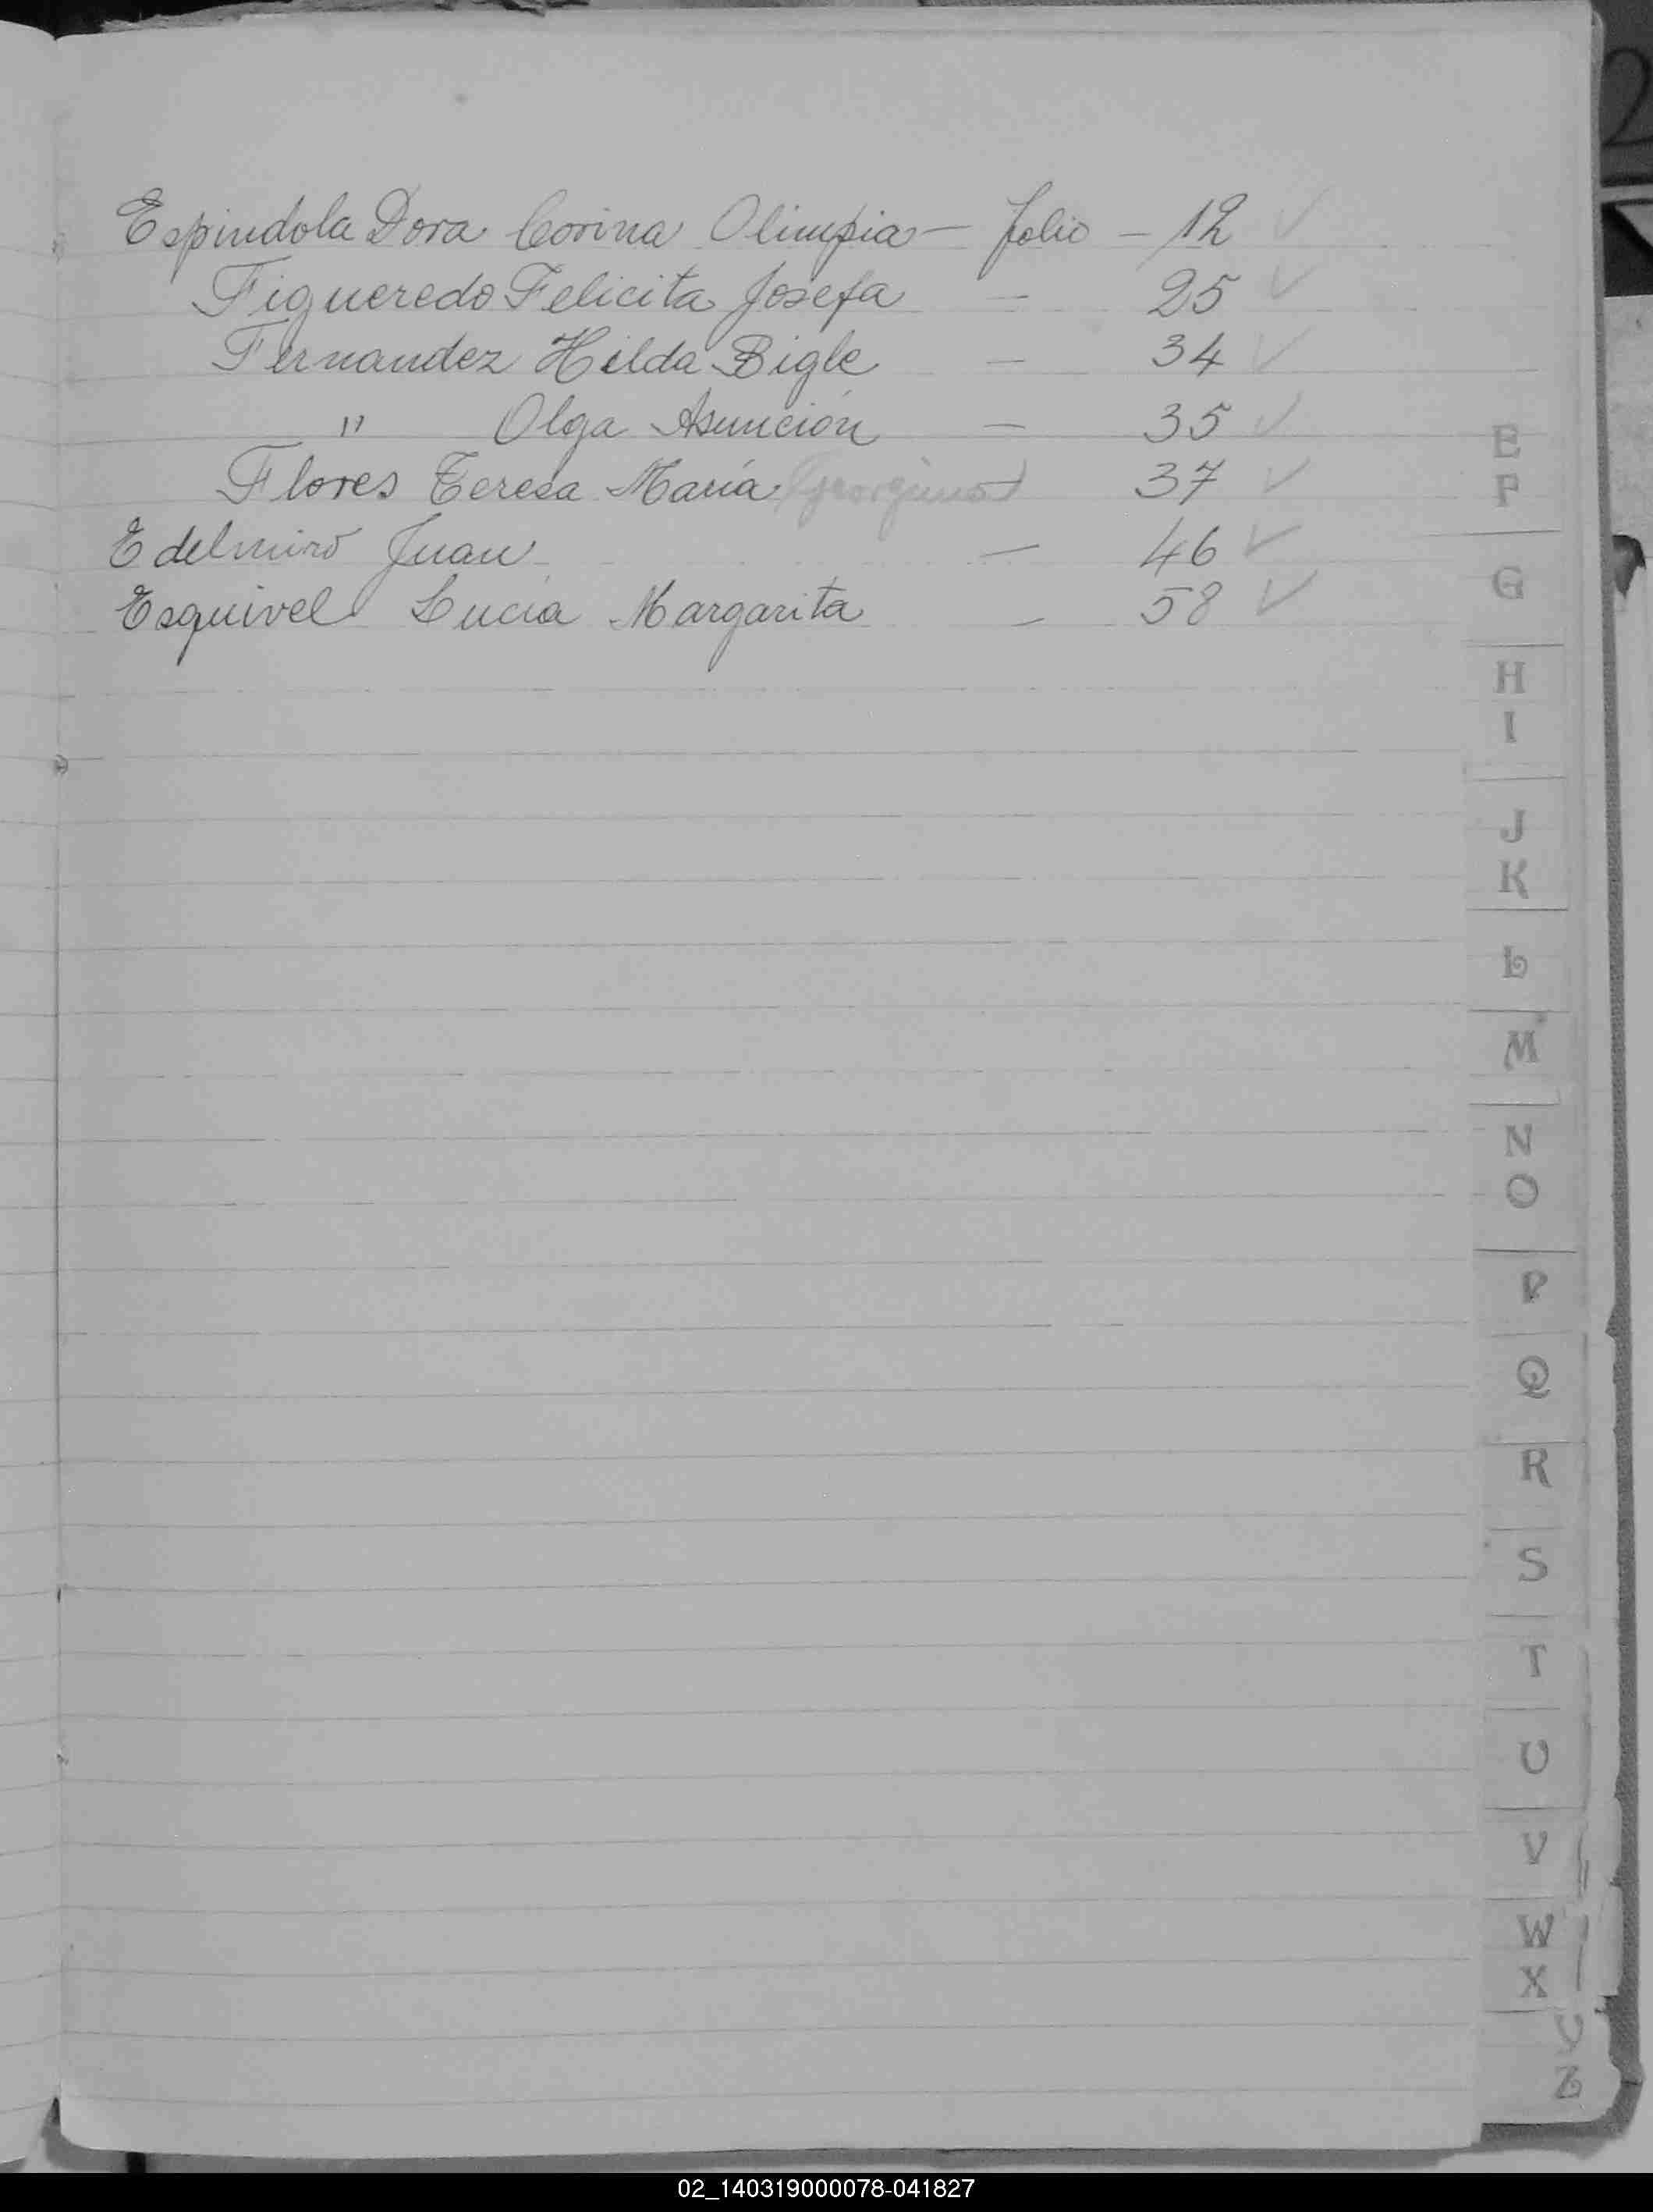 Espindola Dora Corina Olimpia - folio - 12 ✓
Figueredo Felicita Josefa - 25 ✓
Fernandez Hilda Bigle - 34 ✓
" Olga Asunción - 35 ✓
Flores Teresa María (Georgina) 37 ✓
Edelmiro Juan - 46 ✓
Esquivel Lucia Margarita - 58 ✓
E
F
G
H
I
J
K
L
M
N
O
P
Q
R
S
T
U
V
W
X
Y
Z
2
02_140319000078-041827